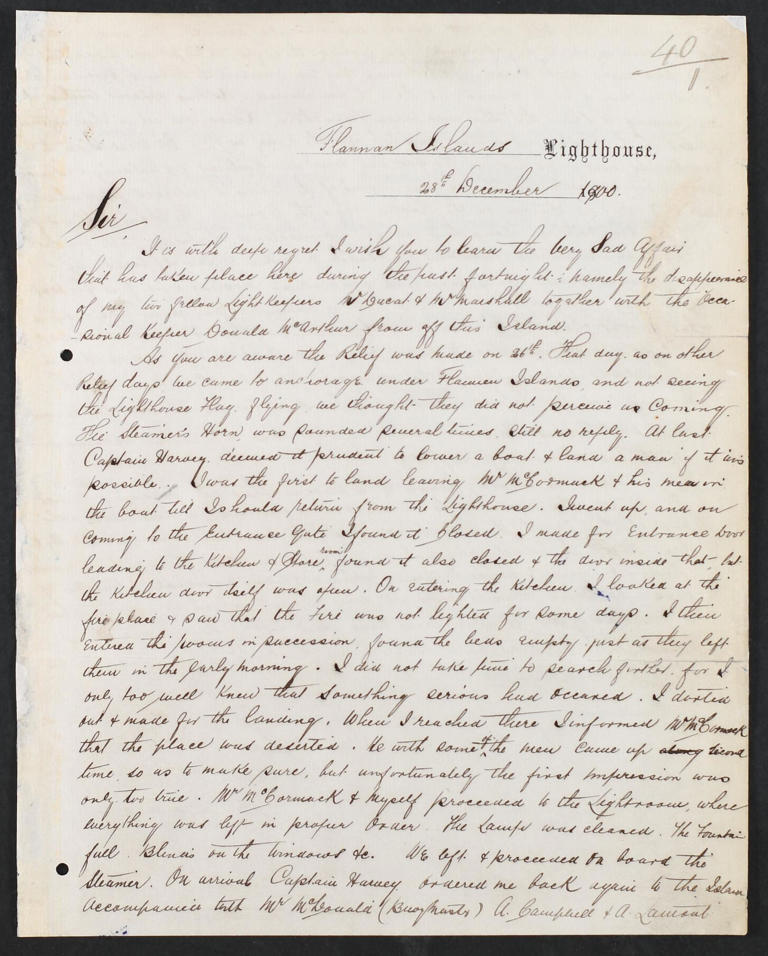 40/1.
Flannan Islands Lighthouse,
28th December 1900.
Sir,
It is with deep regret I wish you to learn the very Sad Affair
that has taken place here during the past fortnight; namely the disappearance
of my two fellow Lightkeepers Mr Ducat & Mr Marshall together with the Occa-
-sional Keeper Donald McArthur from off this Island.
As you are aware the Relief was made on 26th. That day, as on other
Relief days we came to anchorage under Flannan Islands, and not seeing
the Lighthouse Flag flying we thought they did not perceive us coming.
The Steamer's Horn was sounded several times, still no reply. At last
Captain Harvey deemed it prudent to lower a boat & land a man if it was
possible. I was the first to land leaving Mr McCormack & his men in
the boat till I should return from the Lighthouse. I went up, and on
coming to the Entrance Gate I found it closed. I made for Entrance door
leading to the Kitchen & Store room, found it also closed & the door inside that, but
the Kitchen door itself was open. On entering the Kitchen I looked at the
fireplace & saw that the Fire was not lighted for some days. I then
entered the rooms in succession, found the beds empty just as they left
them in the Early morning. I did not take time to search further, for I
only too well knew that something serious had occured. I darted
out & made for the landing. When I reached there I informed Mr McCormack
that the place was deserted. He with some of the men came up along second
time, so as to make sure, but unfortunately the first impression was
only too true. Mr McCormack & myself proceeded to the Lightroom, where
everything was left in proper Order. The Lamp was cleaned. The Fountain
full. Blinds on the Windows &c. We left & proceeded on board the
Steamer. On arrival Captain Harvey ordered me back again to the Island
accompanied with Mr McDonald (Buoymaster) A. Campbell & A. Lamont